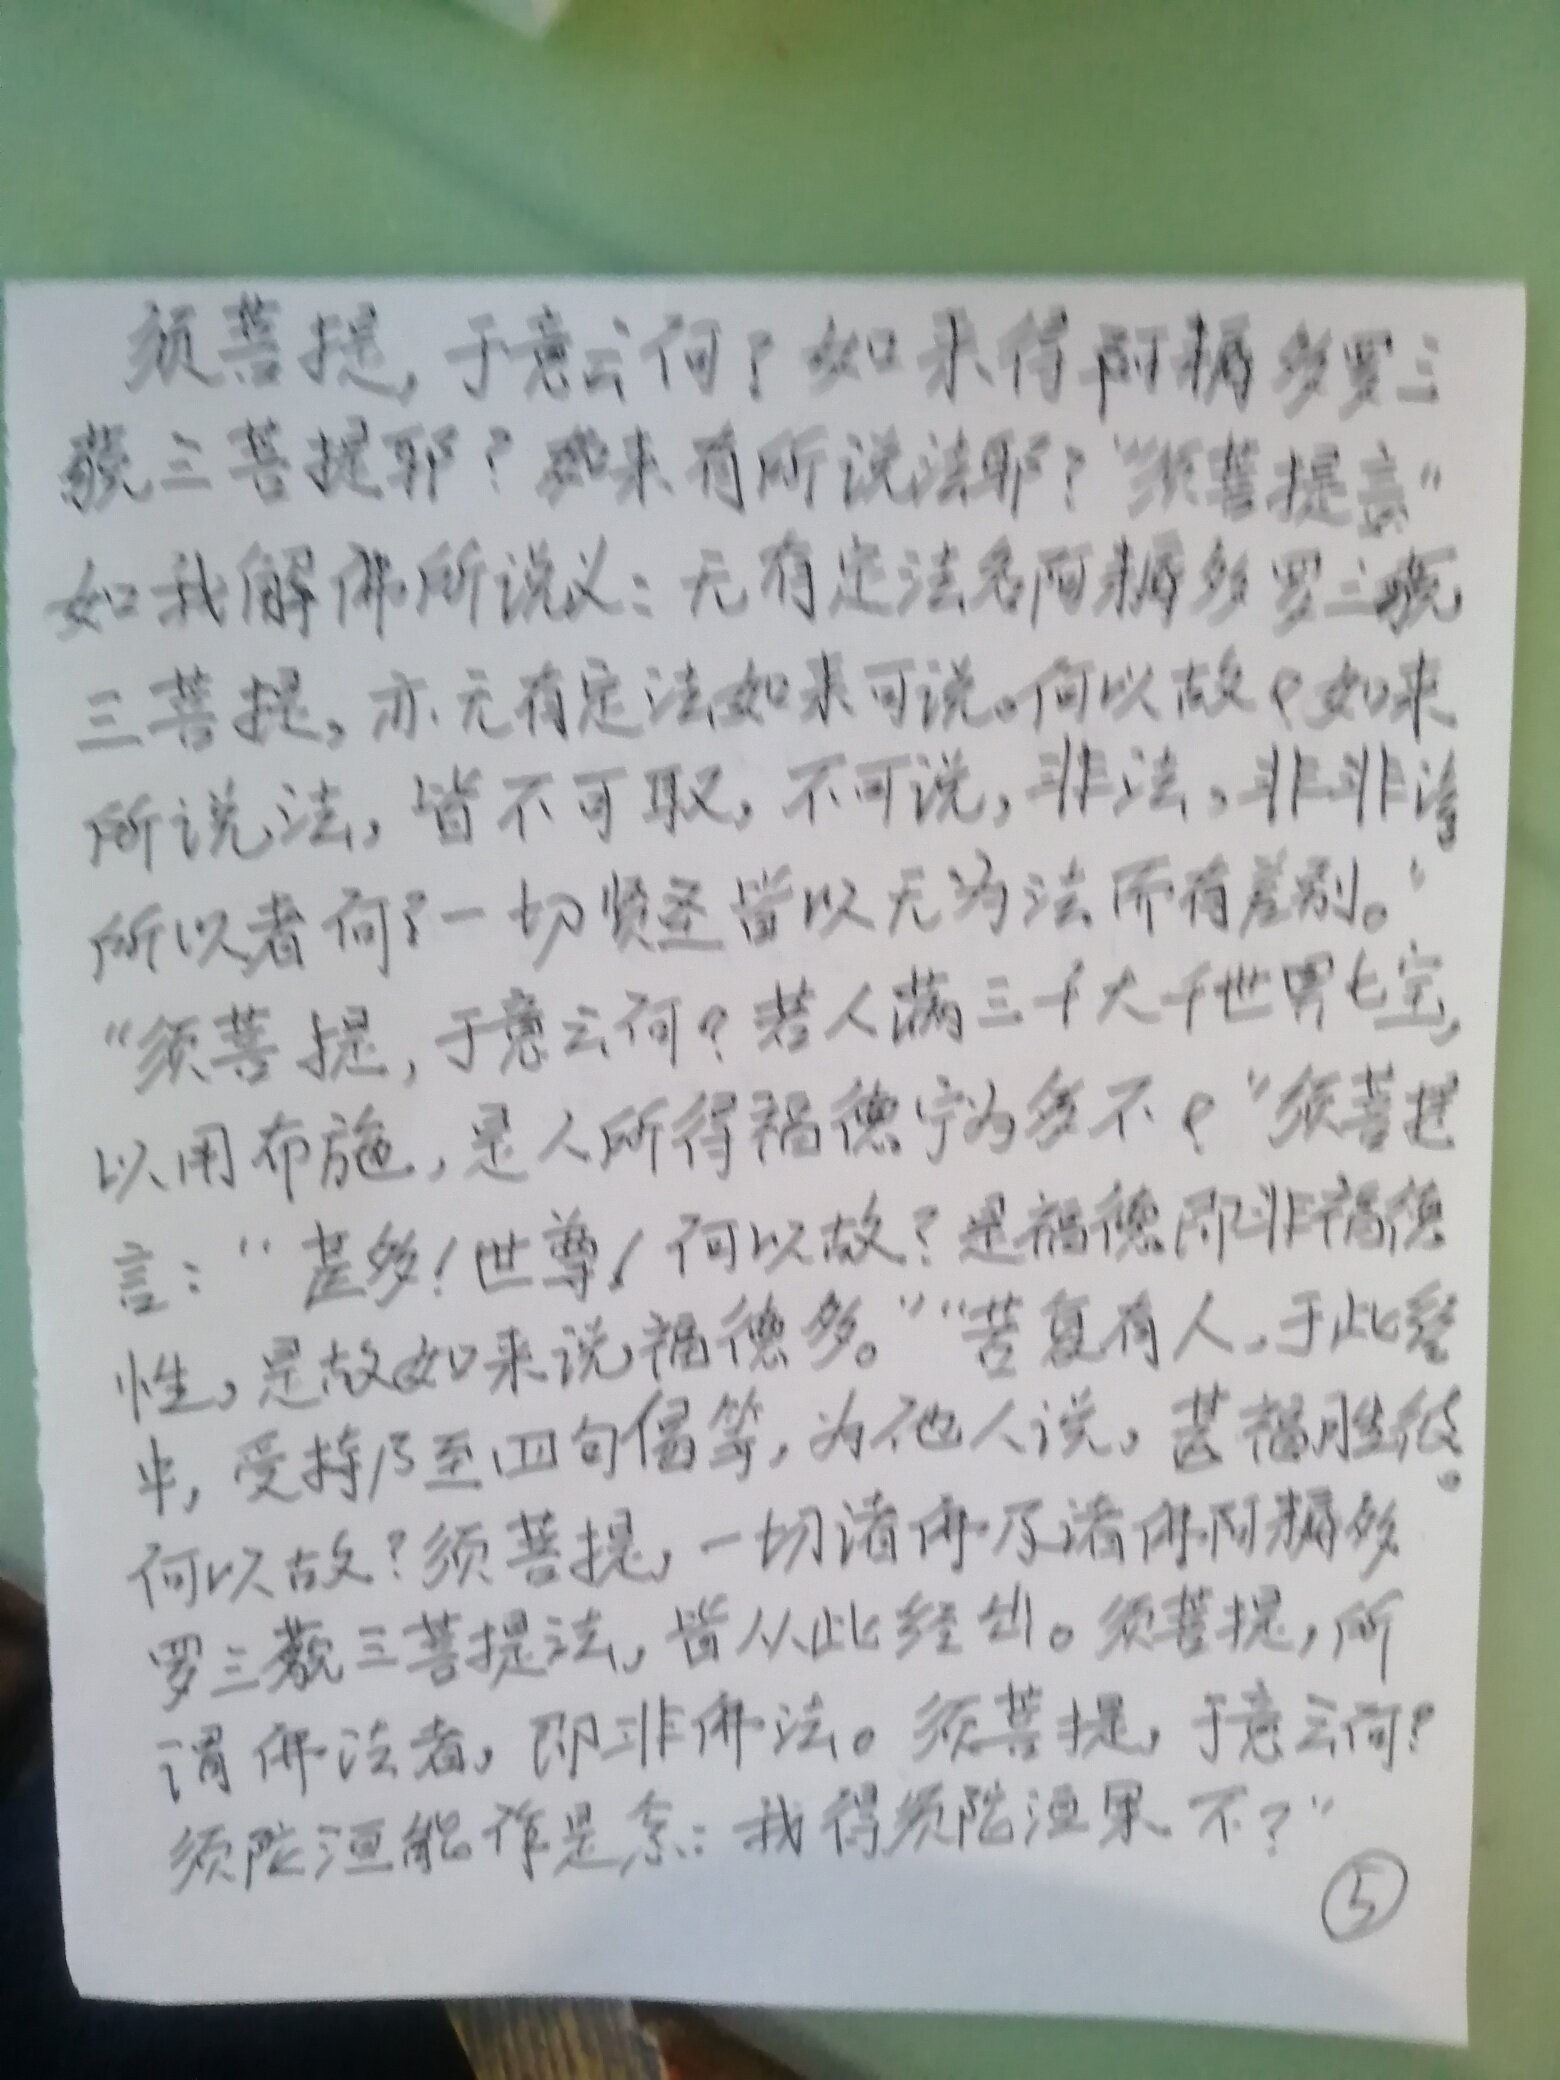 须菩提，于意云何？如来得阿耨多罗三
藐三菩提耶？如来有所说法耶？"须菩提言"
如我解佛所说义：无有定法名阿耨多罗三藐
三菩提，亦无有定法如来可说。何以故？如来
所说法，皆不可取，不可说，非法，非非法
所以者何？一切贤圣皆以无为法而有差别。"
"须菩提，于意云何？若人满三千大千世界七宝，
以用布施，是人所得福德宁为多不？"须菩提
言："甚多！世尊！何以故？是福德即非福德
性，是故如来说福德多。""若复有人，于此经
中，受持乃至四句偈等，为他人说，其福胜彼。
何以故？须菩提，一切诸佛及诸佛阿耨多
罗三藐三菩提法，皆从此经出。须菩提，所
谓佛法者，即非佛法。须菩提，于意云何？
须陀洹能作是念：我得须陀洹果不？"
⑤